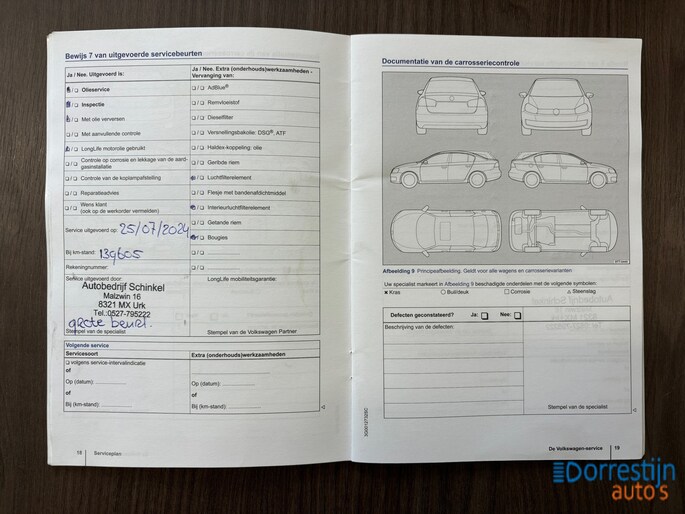 Bewijs 7 van uitgevoerde servicebeurten
Ja / Nee. Uitgevoerd is:
/ Olieservice
/ Inspectie
/ Met olie verversen
/ Met aanvullende controle
/ LongLife motorolie gebruikt
/ Controle op corrosie en lekkage van de aard-
gasinstallatie
/ Controle van de koplampafstelling
/ Reparatieadvies
/ Wens klant
(ook op de werkorder vermelden)
Service uitgevoerd op: 25/07/2024
Bij km-stand: 139605
Rekeningnummer:
Service uitgevoerd door:
Autobedrijf Schinkel
Malzwin 16
8321 MX Urk
Tel.:0527-795222
grote beurt.
Stempel van de specialist
Ja / Nee. Extra (onderhouds)werkzaamheden -
Vervanging van:
/ AdBlue®
/ Remvloeistof
/ Dieselfilter
/ Versnellingsbakolie: DSG®, ATF
/ Haldex-koppeling: olie
/ Geribde riem
/ Luchtfilterelement
/ Flesje met bandenafdichtmiddel
/ Interieurluchtfilterelement
/ Getande riem
/ Bougies
LongLife mobiliteitsgarantie:
Stempel van de Volkswagen Partner
Volgende service
Servicesoort
volgens service-intervalindicatie
of
Op (datum):
of
Bij (km-stand):
Extra (onderhouds)werkzaamheden
Op (datum):
of
Bij (km-stand):
18 Serviceplan
Documentatie van de carrosseriecontrole
Afbeelding 9 Principeafbeelding: Geldt voor alle wagens en carrosserievarianten
Uw specialist markeert in Afbeelding 9 beschadigde onderdelen met de volgende symbolen:
× Kras ○ Buil/deuk □ Corrosie △ Steenslag
Defecten geconstateerd? Ja: Nee:
Beschrijving van de defecten:
Stempel van de specialist
De Volkswagen-service 19
Dorrestijn
auto's